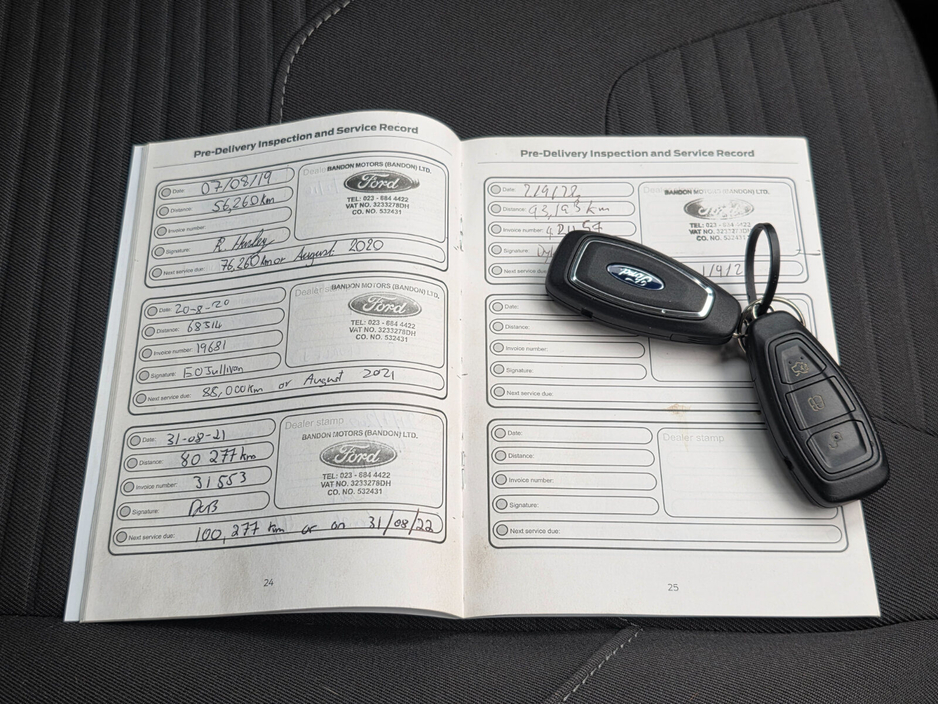 Pre-Delivery Inspection and Service Record
Date: 07/08/19
Distance: 56,260km
Invoice number:
Signature: R. Hurley
Next service due: 76,260km or August 2020
Dealer
BANDON MOTORS (BANDON) LTD.
Ford
TEL: 023 - 884 4422
VAT NO. 3233278DH
CO. NO. 532431
Date: 20-8-20
Distance: 68314
Invoice number: 19681
Signature: EOSullivan
Next service due: 88,000km or August 2021
Dealer
BANDON MOTORS (BANDON) LTD.
Ford
TEL: 023 - 884 4422
VAT NO. 3233278DH
CO. NO. 532431
Date: 31-08-21
Distance: 80 277km
Invoice number: 31553
Signature:
Next service due: 100,277 km or on 31/08/22
Dealer stamp
BANDON MOTORS (BANDON) LTD.
Ford
TEL: 023 - 884 4422
VAT NO. 3233278DH
CO. NO. 532431
24
Pre-Delivery Inspection and Service Record
Date: 2/9/22
Distance: 93,193km
Invoice number:
Signature:
Next service due:
BANDON MOTORS (BANDON) LTD.
Ford
TEL: 023 -
VAT NO. 3233278DH
CO. NO. 532431
Date:
Distance:
Invoice number:
Signature:
Next service due:
Date:
Distance:
Invoice number:
Signature:
Next service due:
Dealer stamp
25
Ford